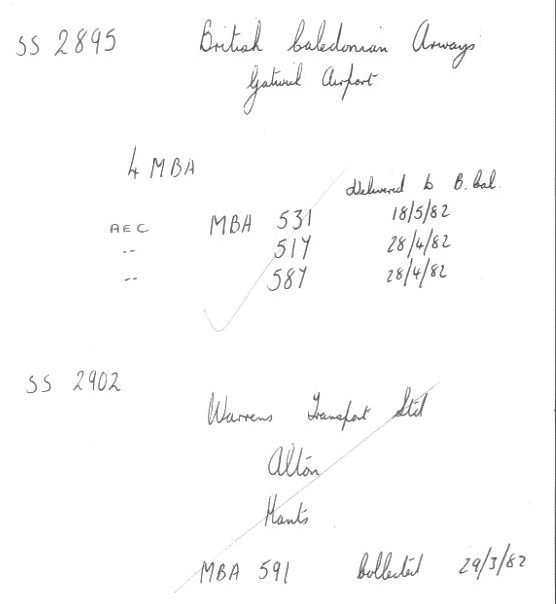 SS 2895 British Caledonian Airways
Gatwick Airport
4 MBA
Delivered to B. Cal.
AEC MBA 531 18/5/82
-- 517 28/4/82
-- 587 28/4/82
SS 2902
Warrens Transport Ltd
Alton
Hants
MBA 591 Collected 29/3/82